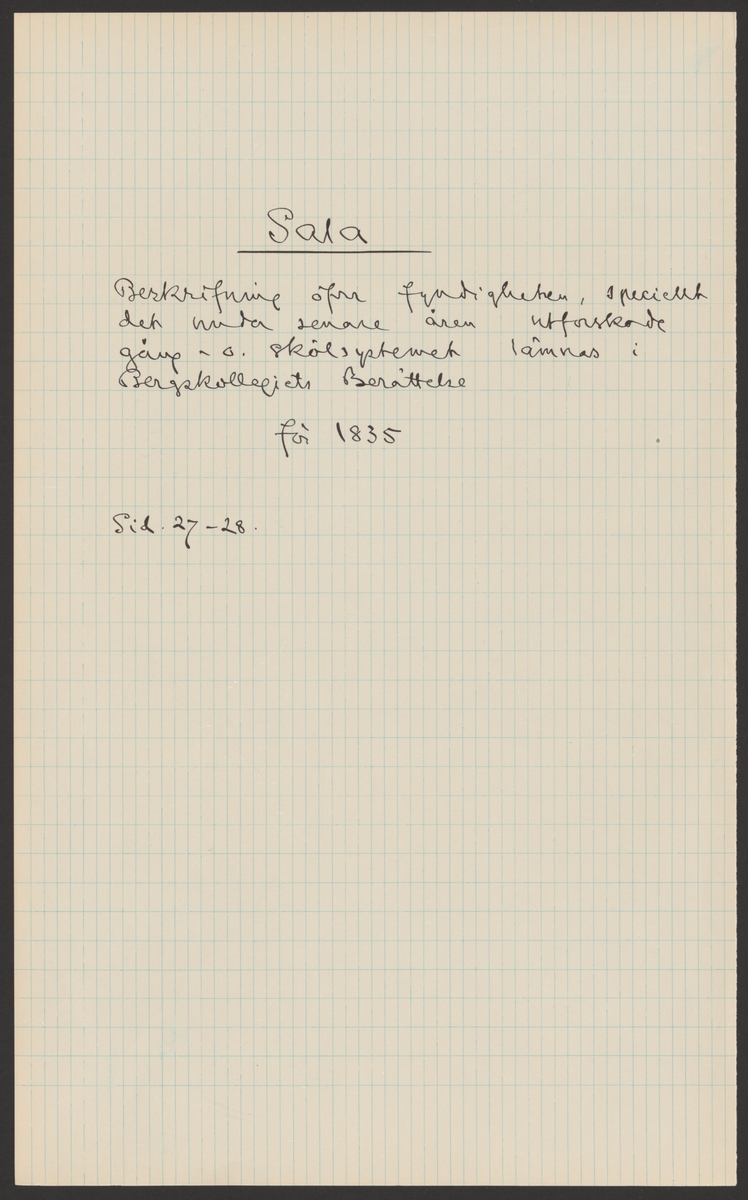 Sala
Beskrifning öfver fyndigheten, speciellt
det under senare åren utforskade
gång - o. skölsystemet lämnas i
Bergskollegiets Berättelse
för 1835
Sid. 27-28.